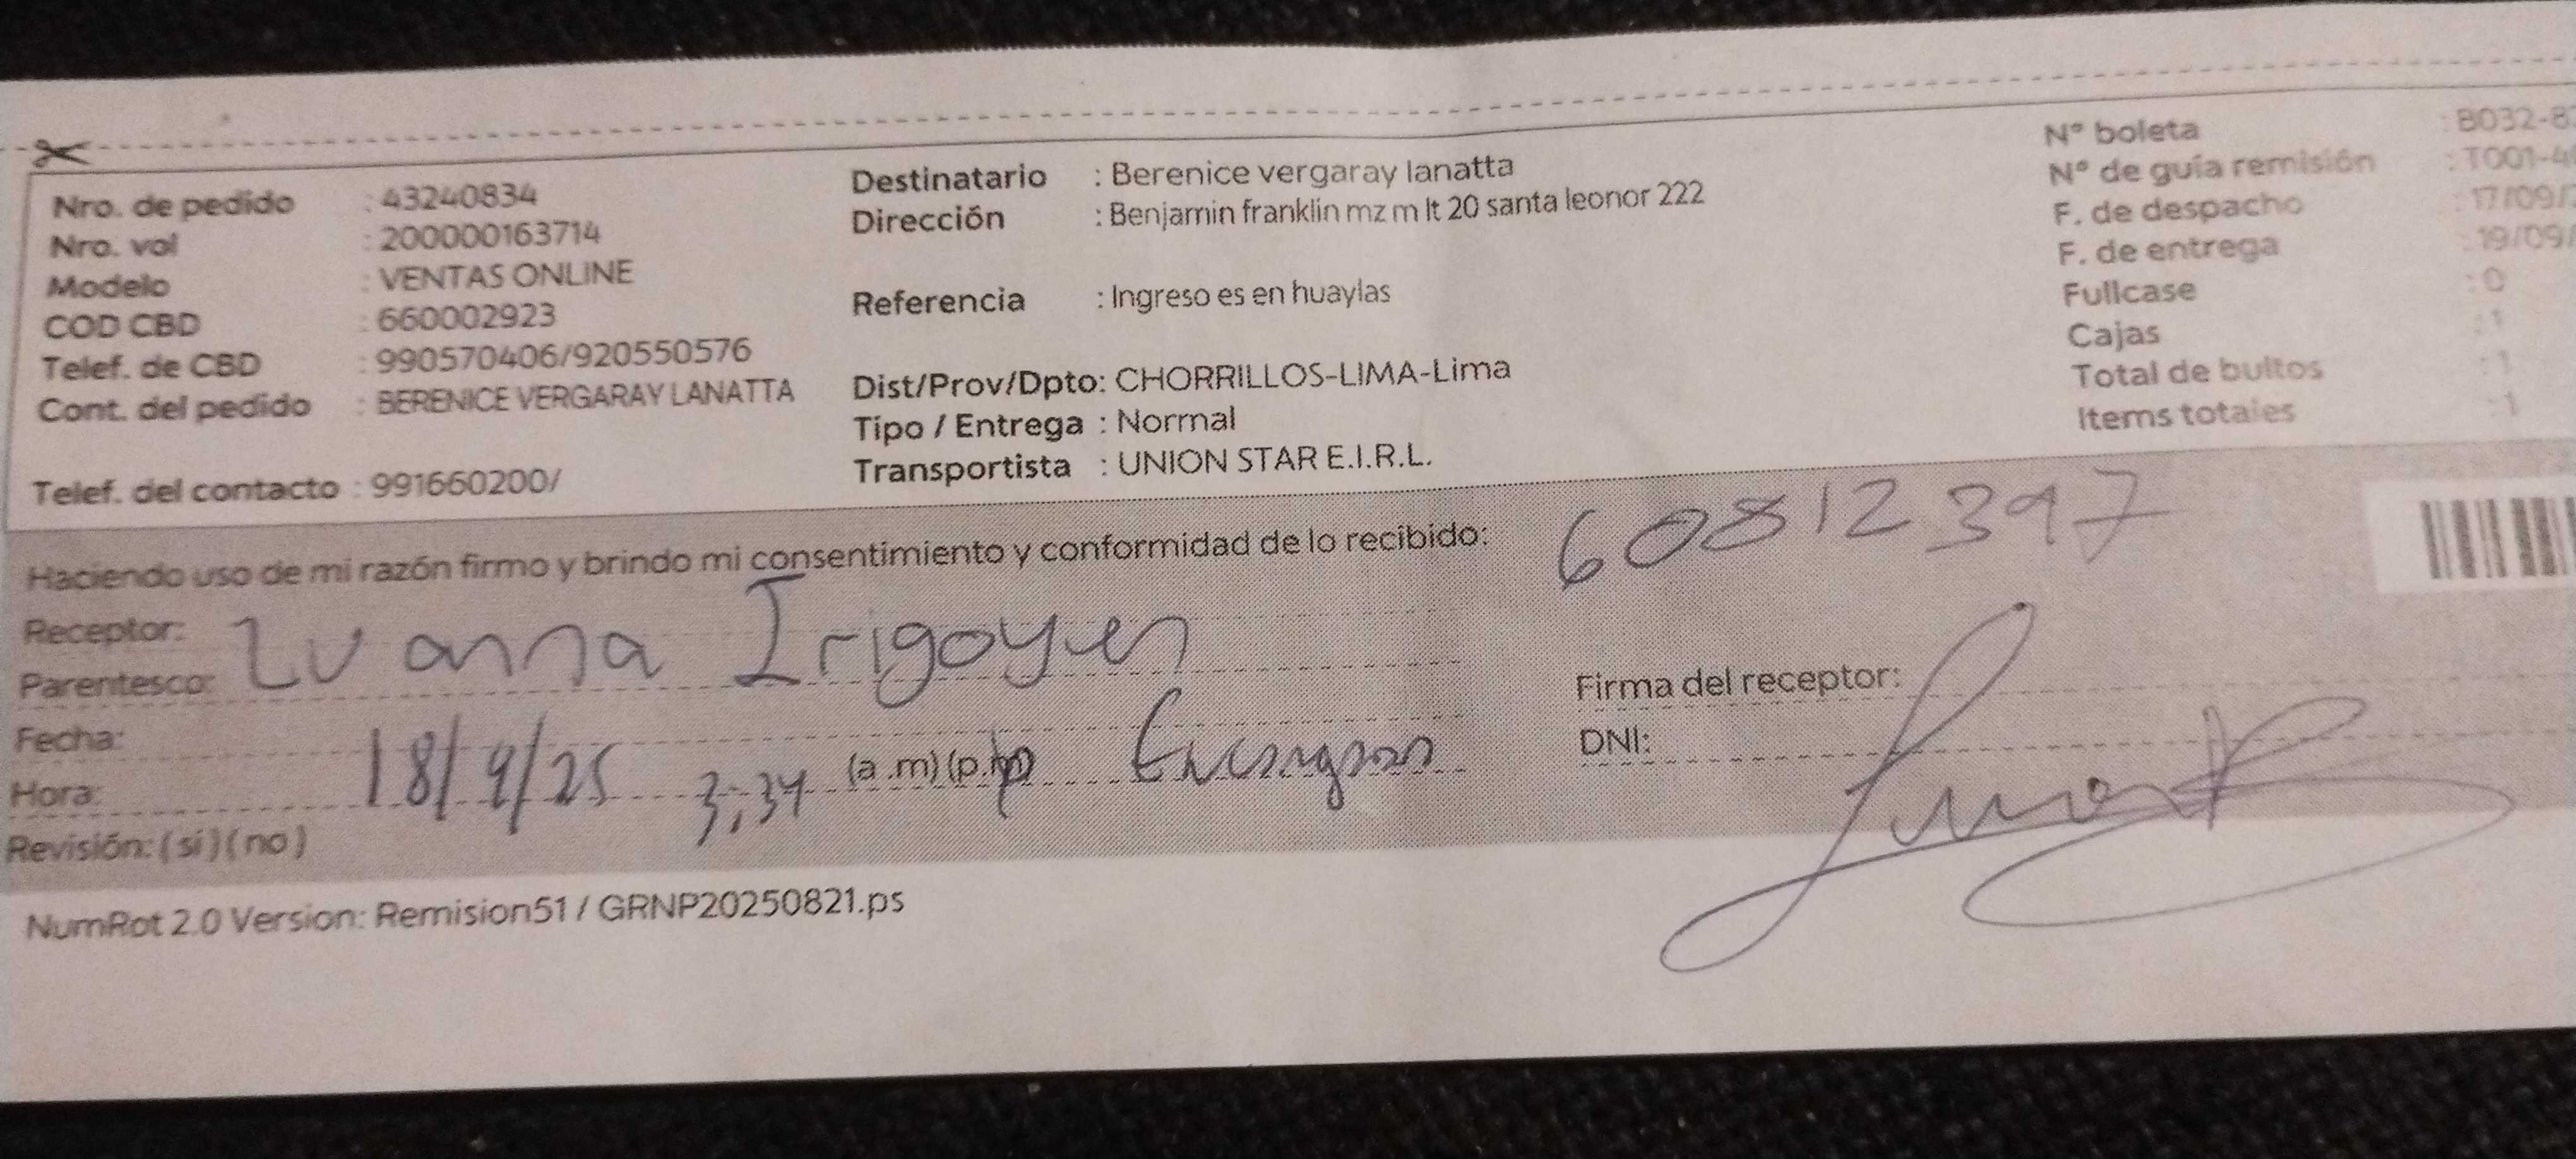 Nro. de pedido : 43240834
Nro. vol : 200000163714
Modelo : VENTAS ONLINE
COD CBD : 660002923
Telef. de CBD : 990570406/920550576
Cont. del pedido : BERENICE VERGARAY LANATTA
Telef. del contacto : 991660200/
Destinatario : Berenice vergaray lanatta
Dirección : Benjamin franklin mz m lt 20 santa leonor 222
Referencia : Ingreso es en huaylas
Dist/Prov/Dpto: CHORRILLOS-LIMA-Lima
Tipo / Entrega : Normal
Transportista : UNION STAR E.I.R.L.
N° boleta : B032-8
N° de guía remisión : T001-4
F. de despacho : 17/09/
F. de entrega : 19/09/
Fullcase : 0
Cajas : 1
Total de bultos : 1
Items totales : 1
Haciendo uso de mi razón firmo y brindo mi consentimiento y conformidad de lo recibido: 60812397
Receptor: Ivanna Irigoyen
Parentesco:
Fecha: 18/9/25
Hora: 3:34 (a .m) (p.m)
Revisión: (si) (no)
Firma del receptor:
DNI:
NumRot 2.0 Version: Remision51 / GRNP20250821.ps